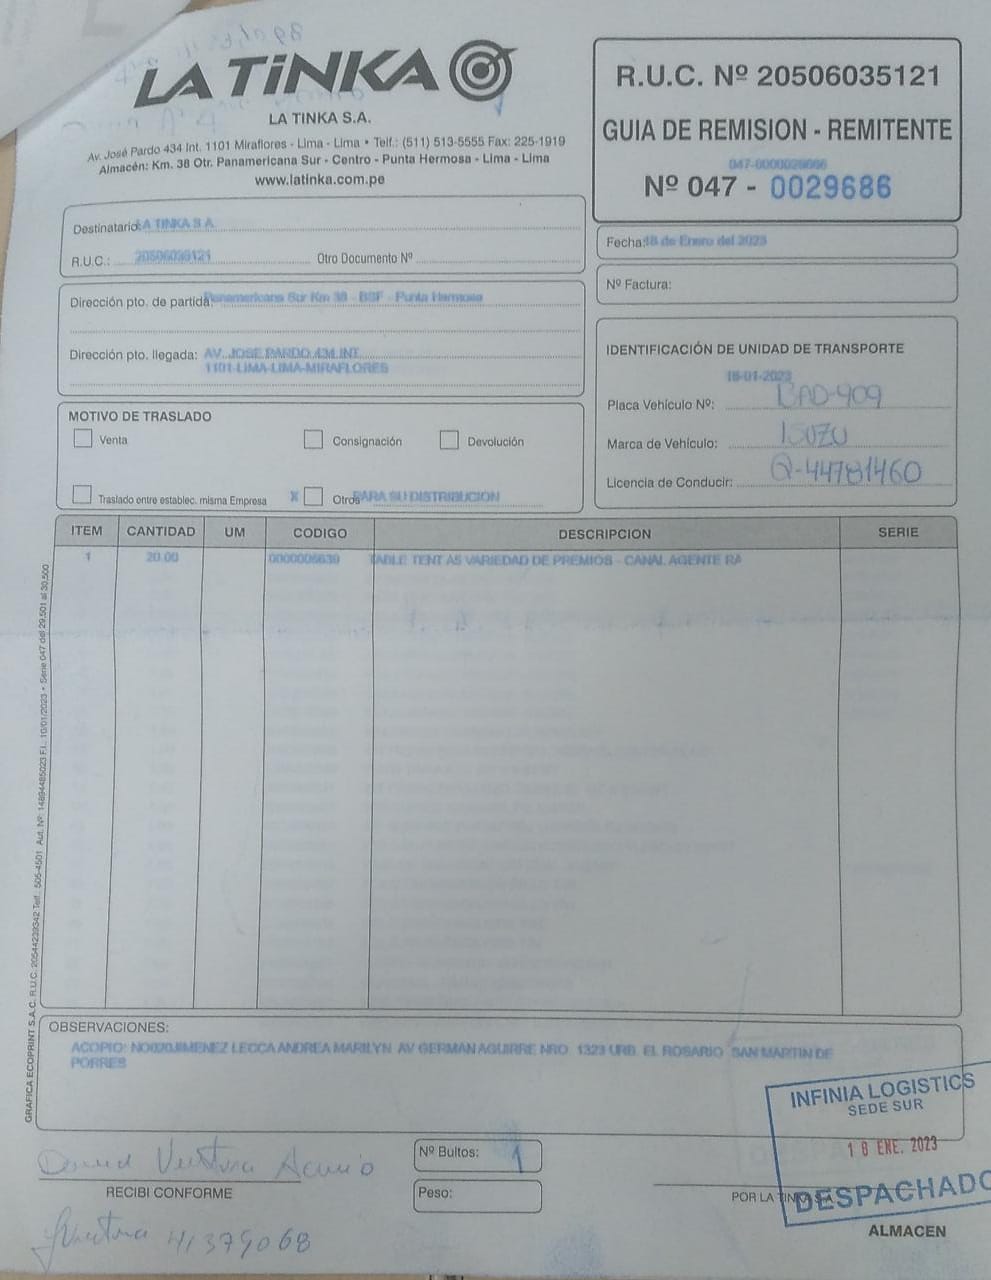 LA TiNKA
LA TINKA S.A.
Av. José Pardo 434 Int. 1101 Miraflores - Lima - Lima • Telf.: (511) 513-5555 Fax: 225-1919
Almacén: Km. 38 Otr. Panamericana Sur - Centro - Punta Hermosa - Lima - Lima
www.latinka.com.pe
R.U.C. Nº 20506035121
GUIA DE REMISION - REMITENTE
047-0000029686
Nº 047 - 0029686
Destinatario: LA TINKA S.A.
R.U.C.: 20506035121 Otro Documento Nº
Fecha: 18 de Enero del 2023
Nº Factura:
Dirección pto. de partida: Panamericana Sur Km 38 - BSF - Punta Hermosa
Dirección pto. llegada: AV. JOSE PARDO 434 INT.
1101-LIMA-LIMA-MIRAFLORES
IDENTIFICACIÓN DE UNIDAD DE TRANSPORTE
18-01-2023
Placa Vehículo Nº: BAD-909
Marca de Vehículo: ISUZU
Licencia de Conducir: Q-44781460
MOTIVO DE TRASLADO
Venta Consignación Devolución
Traslado entre establec. misma Empresa X Otros PARA SU DISTRIBUCION
ITEM CANTIDAD UM CODIGO DESCRIPCION SERIE
1 20.00 0000006639 TABLE TENT AS VARIEDAD DE PREMIOS - CANAL AGENTE RA
GRAFICA ECOPRINT S.A.C. R.U.C. 20544239342 Telf.: 505-4501 Aut. Nº: 14894485023 F.I.: 10/01/2023 • Serie 047 del 29,501 al 30,500
OBSERVACIONES:
ACOPIO: NO020JIMENEZ LECCA ANDREA MARILYN AV GERMAN AGUIRRE NRO. 1323 URB. EL ROSARIO SAN MARTIN DE
PORRES
INFINIA LOGISTICS
SEDE SUR
18 ENE. 2023
DESPACHADO
David Ventura Acuño
RECIBI CONFORME
Nº Bultos: 1
Peso:
POR LA TINKA S.A.
ALMACEN
Ventura 41379068